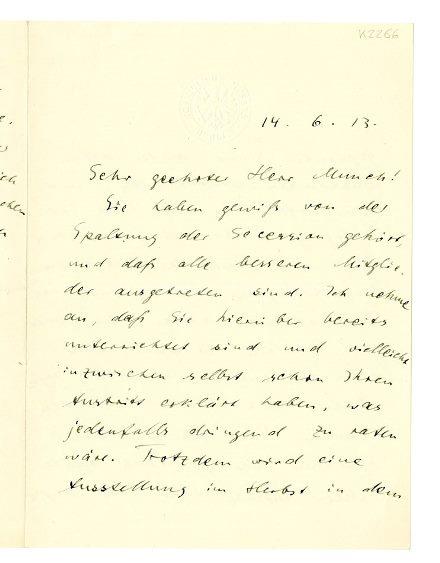 K2266
14. 6. 13.
Sehr geehrter Herr Munch!
Sie haben gewiß von der
Spaltung der Secession gehört
und daß alle besseren Mitglie-
der ausgetreten sind. Ich nehme
an, daß Sie hierüber bereits
unterrichtet sind und vielleicht
inzwischen selbst schon Ihren
Austritt erklärt haben, was
jedenfalls dringend zu raten
wäre. Trotzdem wird eine
Ausstellung im Herbst in dem